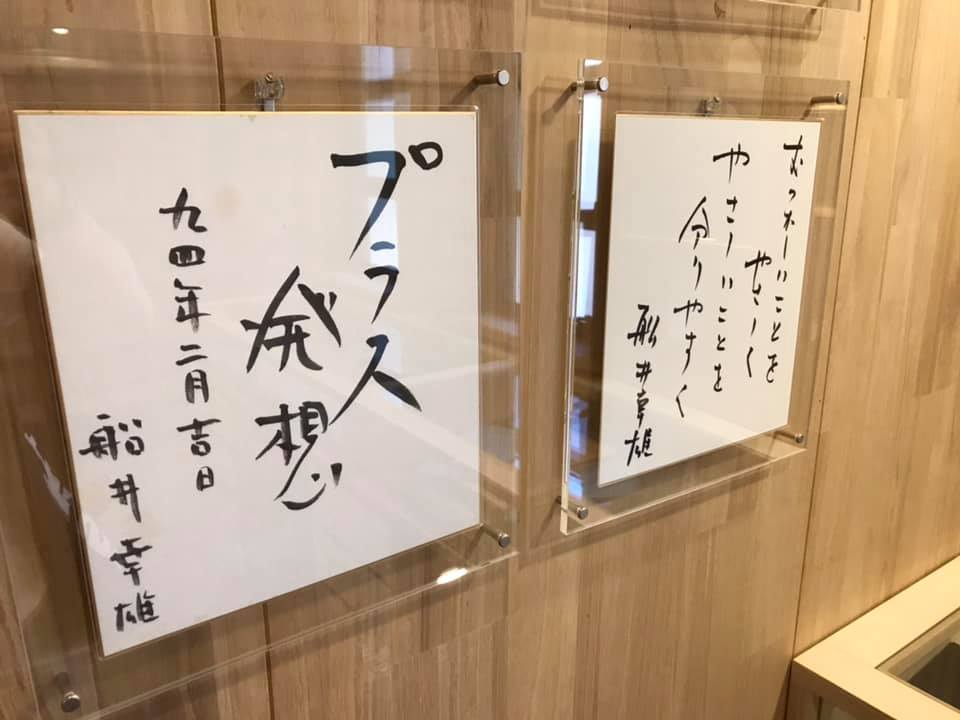 プラス
発想
九四年二月吉日
船井幸雄
むつかしいことを
やさしく
やさしいことを
分りやすく
船井幸雄